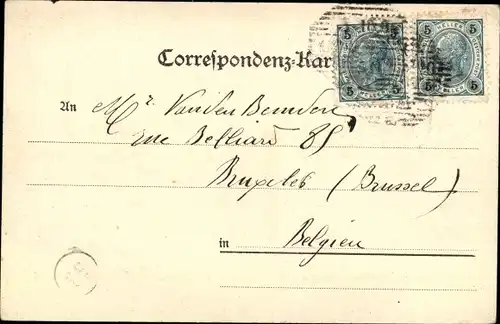 Correspondenz-Kar
5 HELLER 5
5 HELLER 5
5 5
5 5
An Mr. Vanden Bemden
rue Belliard 85
Bruxelles (Brussel)
in Belgien